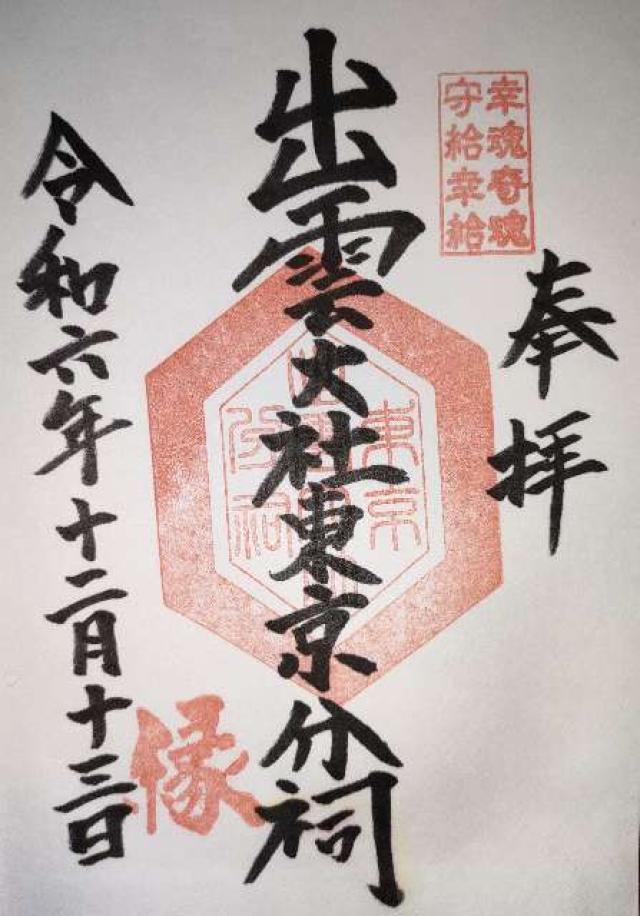 幸魂奇魂
守給幸給
奉拝
出雲大社東京分祠
東京
分祠
縁
令和六年十二月十三日